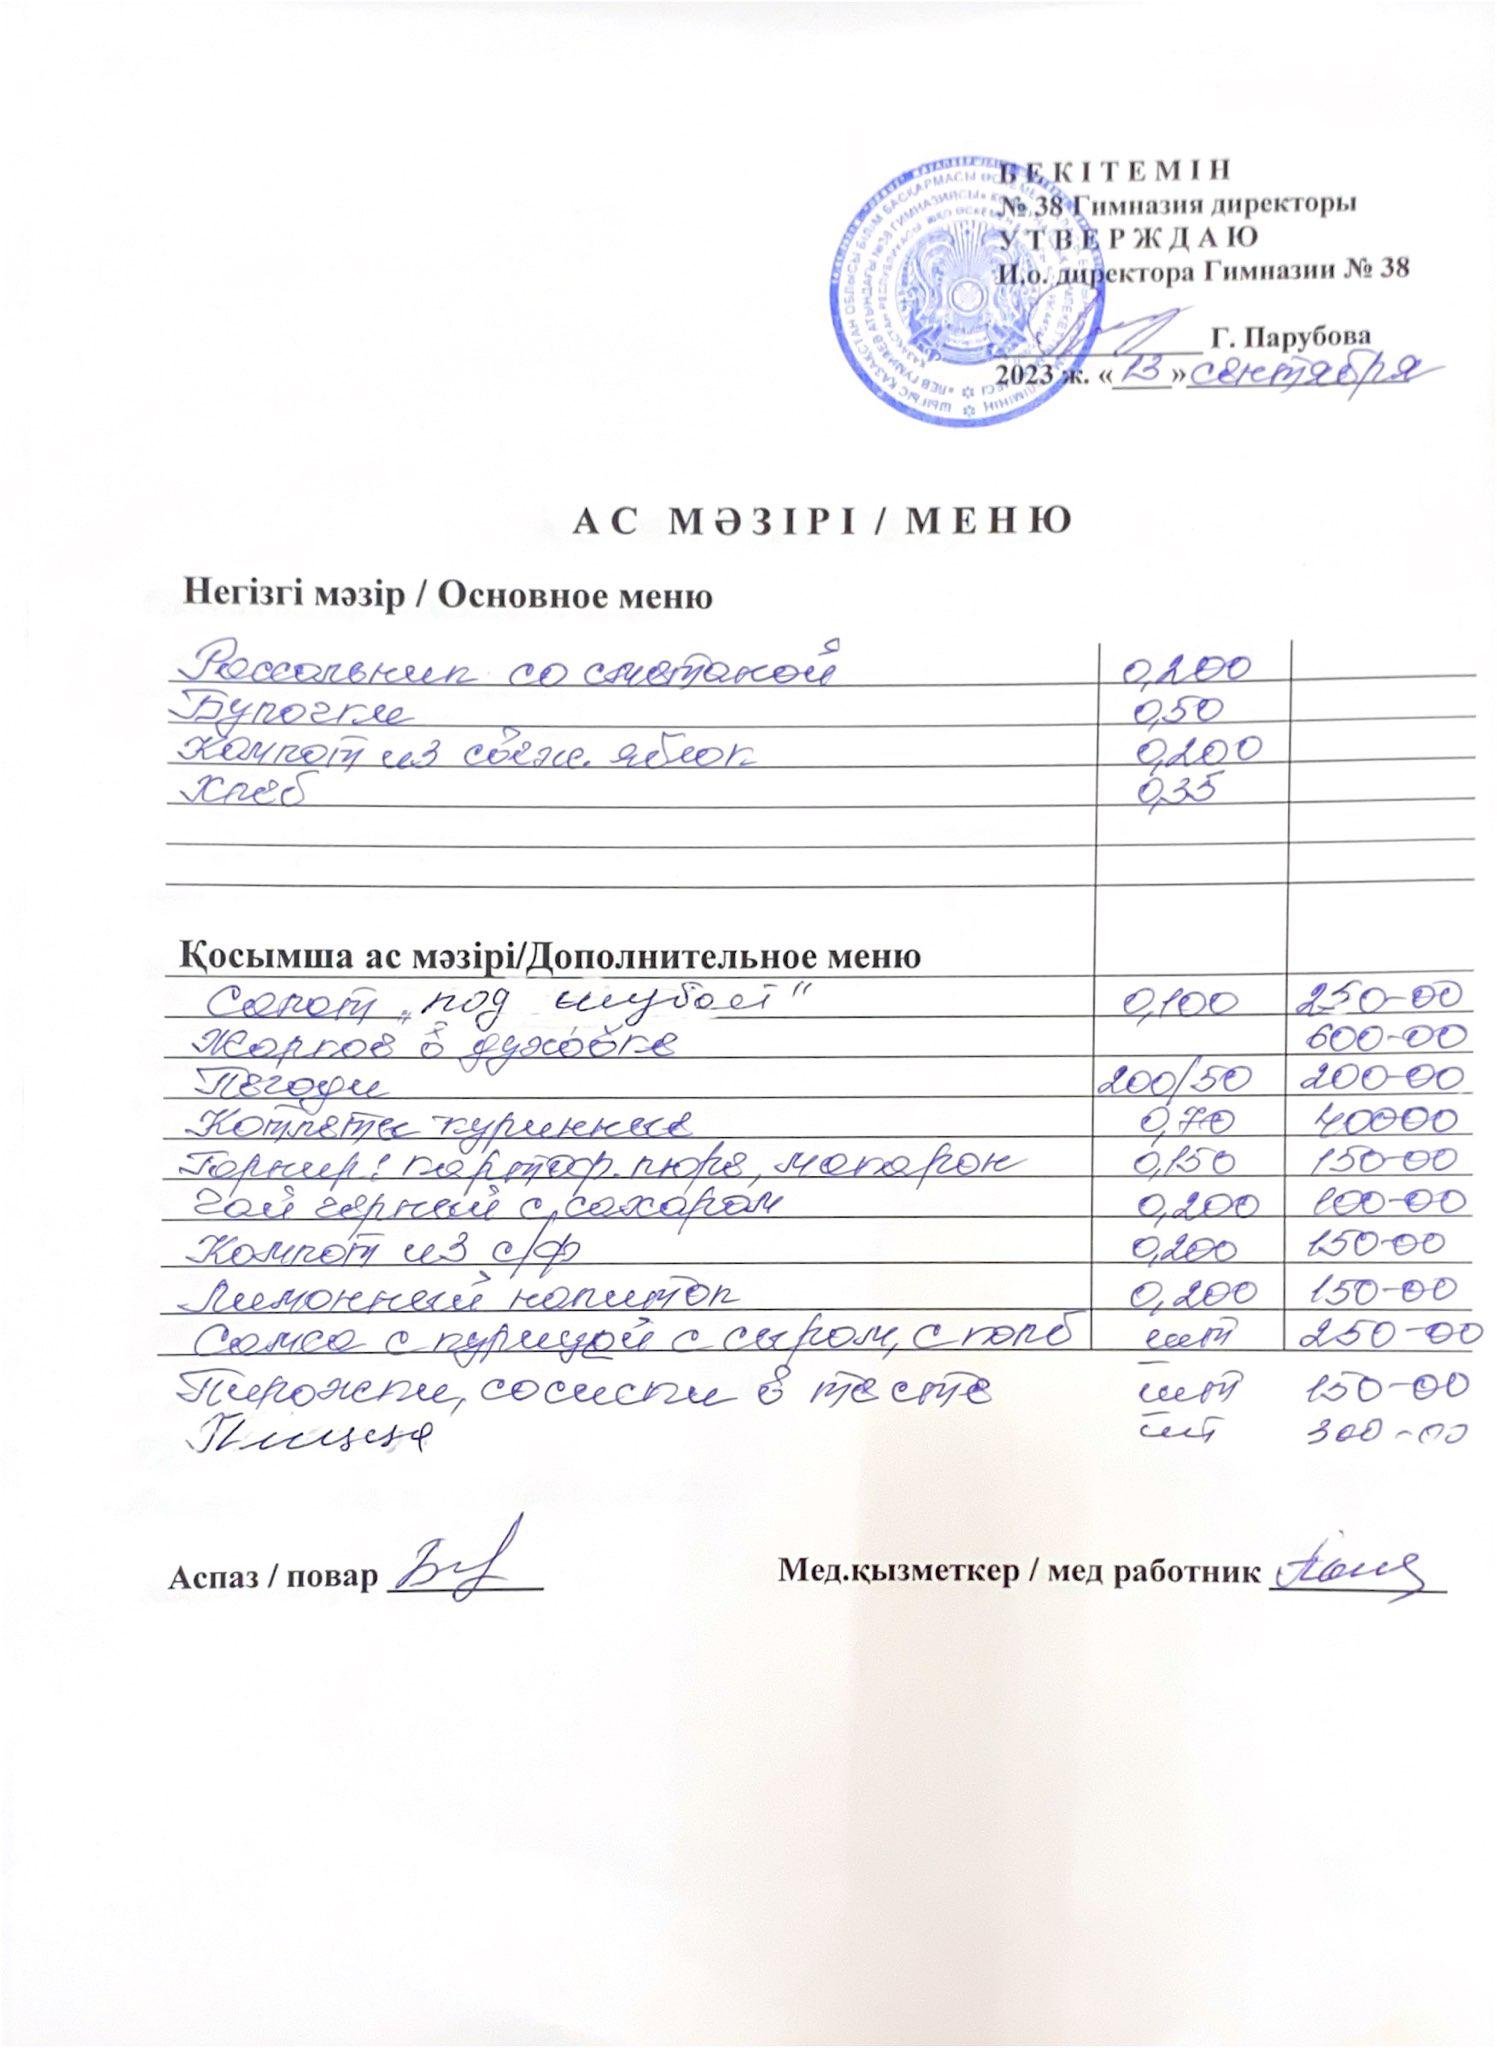 БЕКІТЕМІН
№ 38 Гимназия директоры
УТВЕРЖДАЮ
И.о. директора Гимназии № 38
Г. Парубова
2023 ж. «13» сентября
АС МӘЗІРІ / МЕНЮ
Негізгі мәзір / Основное меню
Рассольник со сметаной 0,200
Булочкле 0,50
Компот из свеж. яблок 0,200
Хлеб 0,35
Қосымша ас мәзірі/Дополнительное меню
Салат „под шубой" 0,100 250-00
Жаркое в духовке 600-00
Пегоди 200/50 200-00
Котлеты куринные 0,70 40000
Гарнир: картоф. пюре, макарон 0,150 150-00
Чай чёрный с сахаром 0,200 100-00
Компот из с/ф 0,200 150-00
Лимонный напиток 0,200 150-00
Самса с курицой с сыром, с колб шт 250-00
Пирожки, сосиски в тесте шт 150-00
Пицца шт 300-00
Аспаз / повар
Мед.қызметкер / мед работник